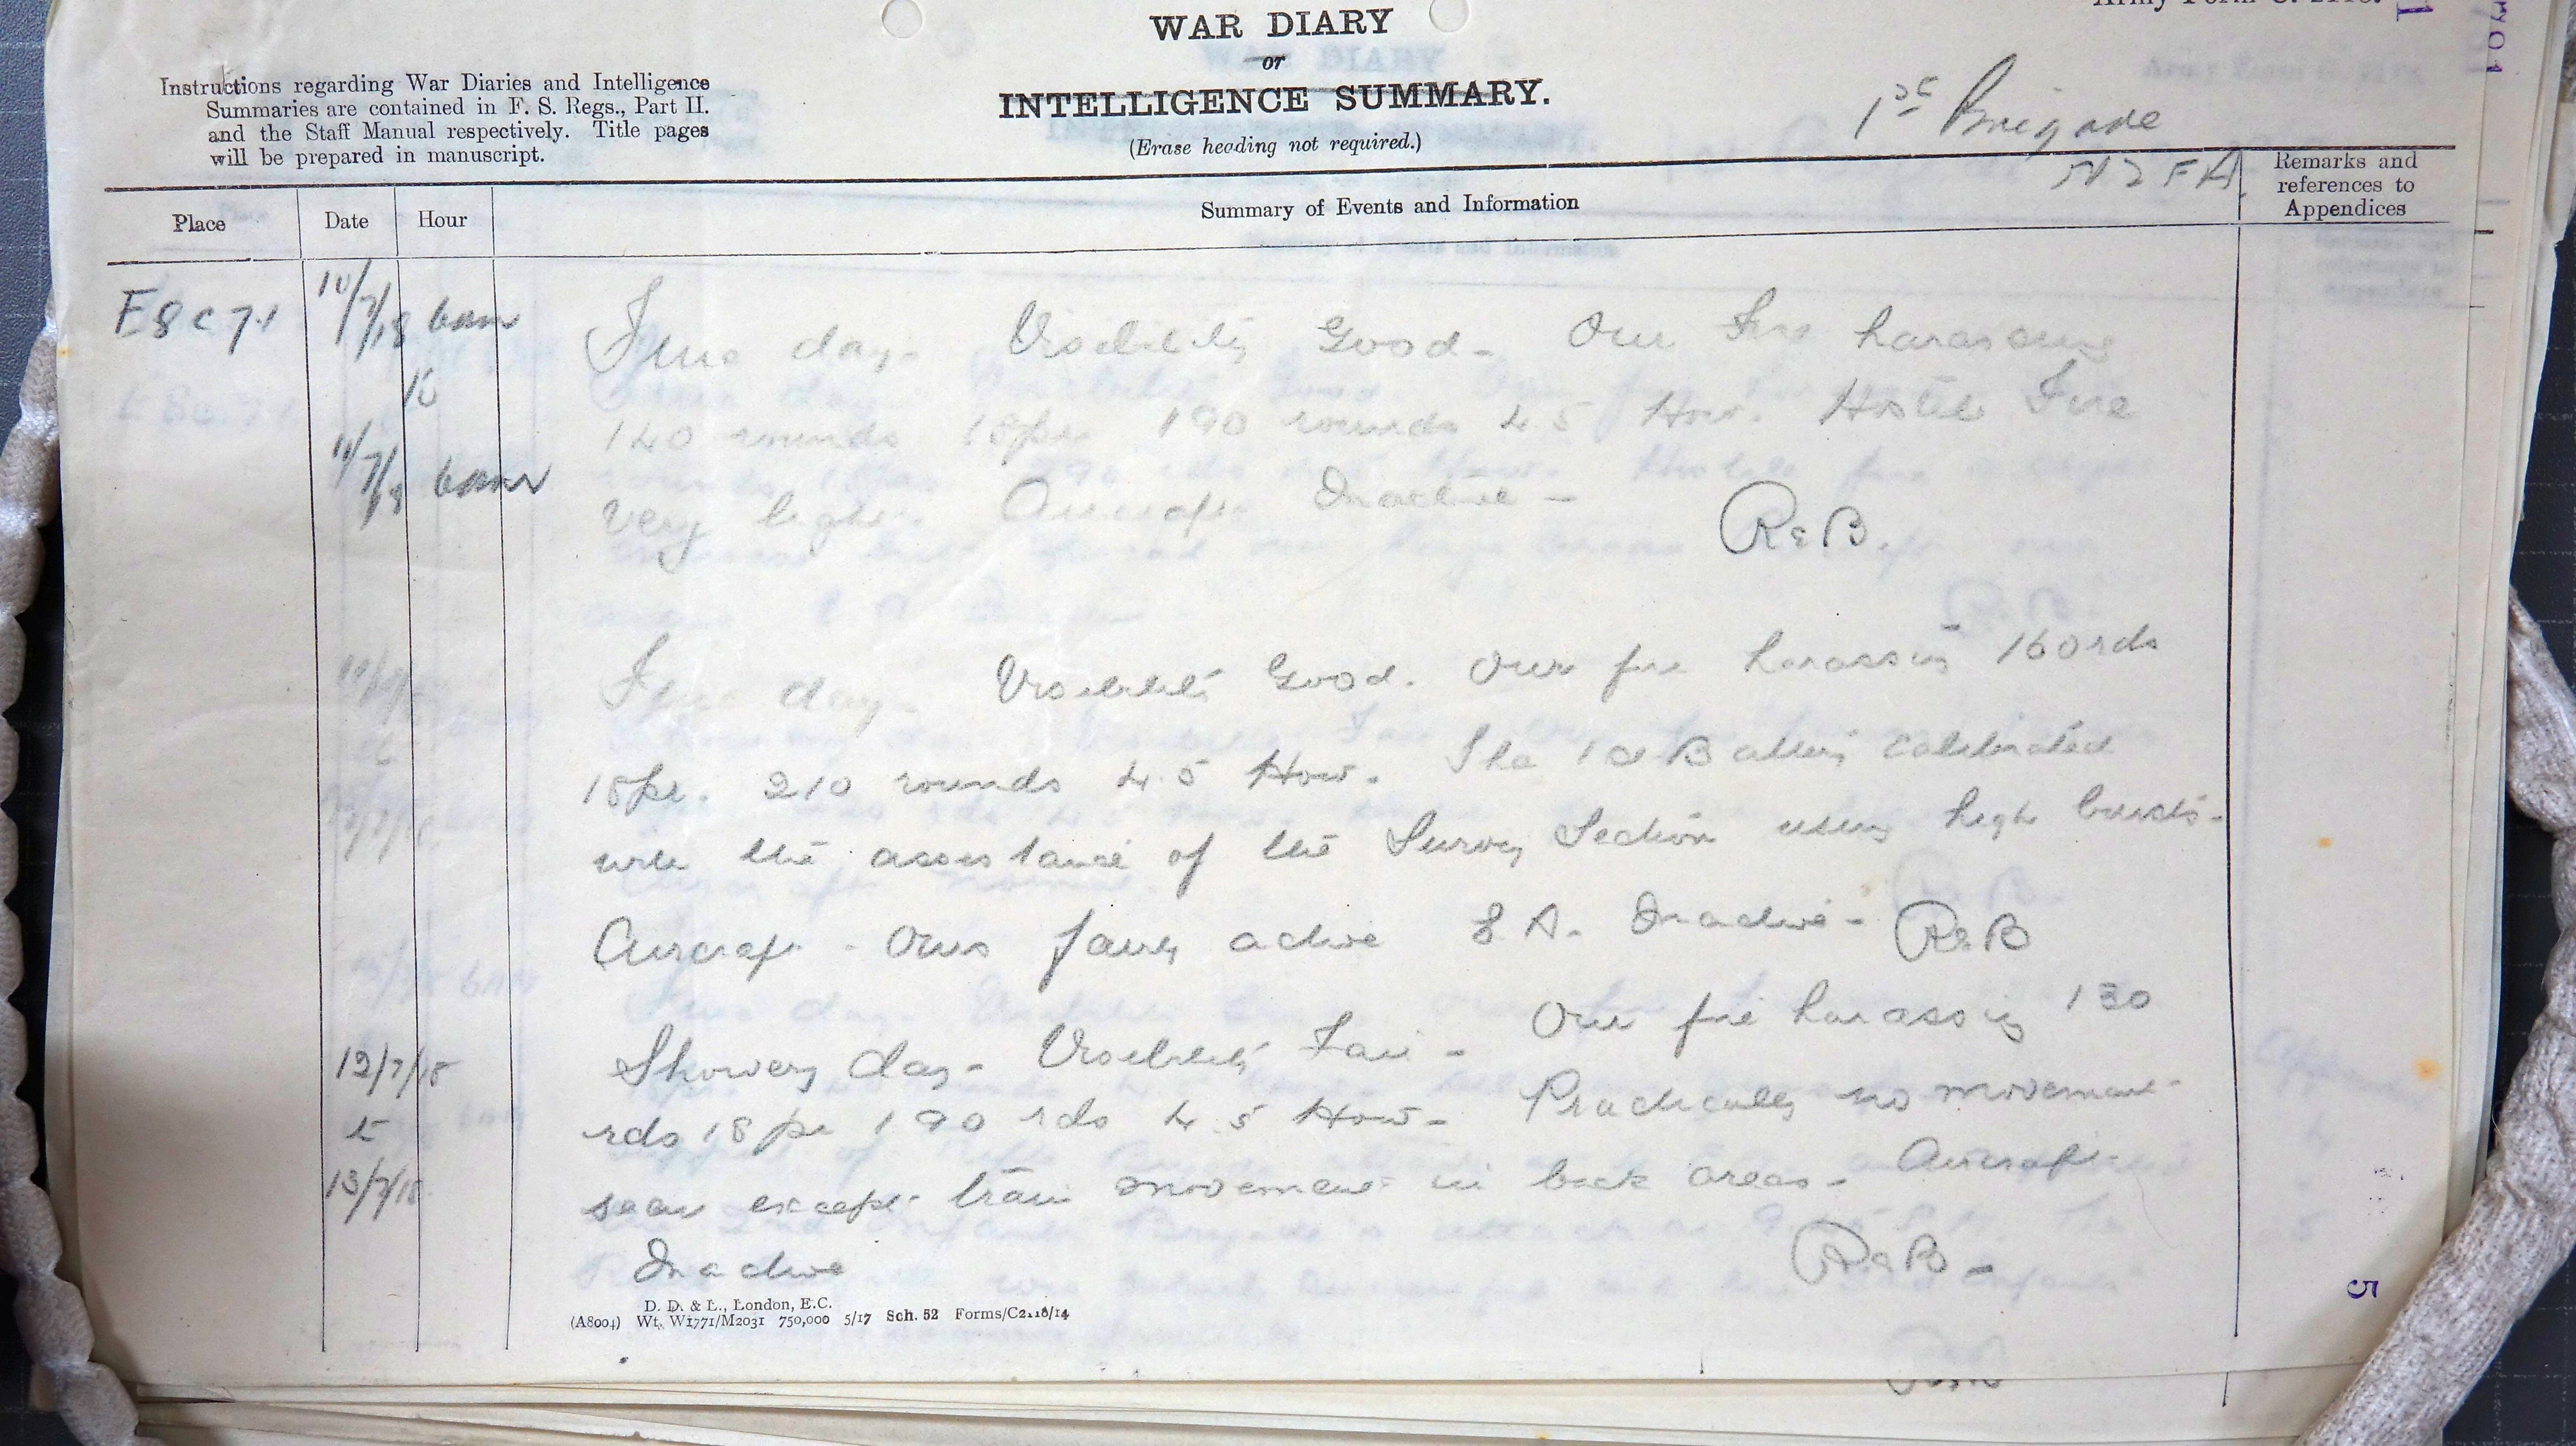 WAR DIARY
or
INTELLIGENCE SUMMARY.
(Erase heading not required.)
Instructions regarding War Diaries and Intelligence
Summaries are contained in F. S. Regs., Part II.
and the Staff Manual respectively. Title pages
will be prepared in manuscript.
1st Brigade
NZFA
Place
Date
Hour
Summary of Events and Information
Remarks and
references to
Appendices
E8c7.1
10/7/18 6am
to
11/7/18 6am
Fine day. Visibility Good. Our Fire harassing
140 rounds 18pr 190 rounds 4.5 How. Hostile Fire
very light. Aircraft Inactive -
ReB.
Fine day. Visibility Good. Our fire harassing 160 rds
18pr. 210 rounds 4.5 How. The 1st Battery calibrated
with the assistance of the Survey Section using high bursts.
Aircraft. Ours fairly active E.A. Inactive - ReB
12/7/18
to
13/7/18
Showery day. Visibility Fair - Our fire harassing 130
rds 18pr 190 rds 4.5 How - Practically no movement
seen except train movement in back areas. Aircraft
Inactive
ReB -
D. D. & L., London, E.C.
(A8004) Wt. W1771/M2031 750,000 5/17 Sch. 52 Forms/C2118/14
5